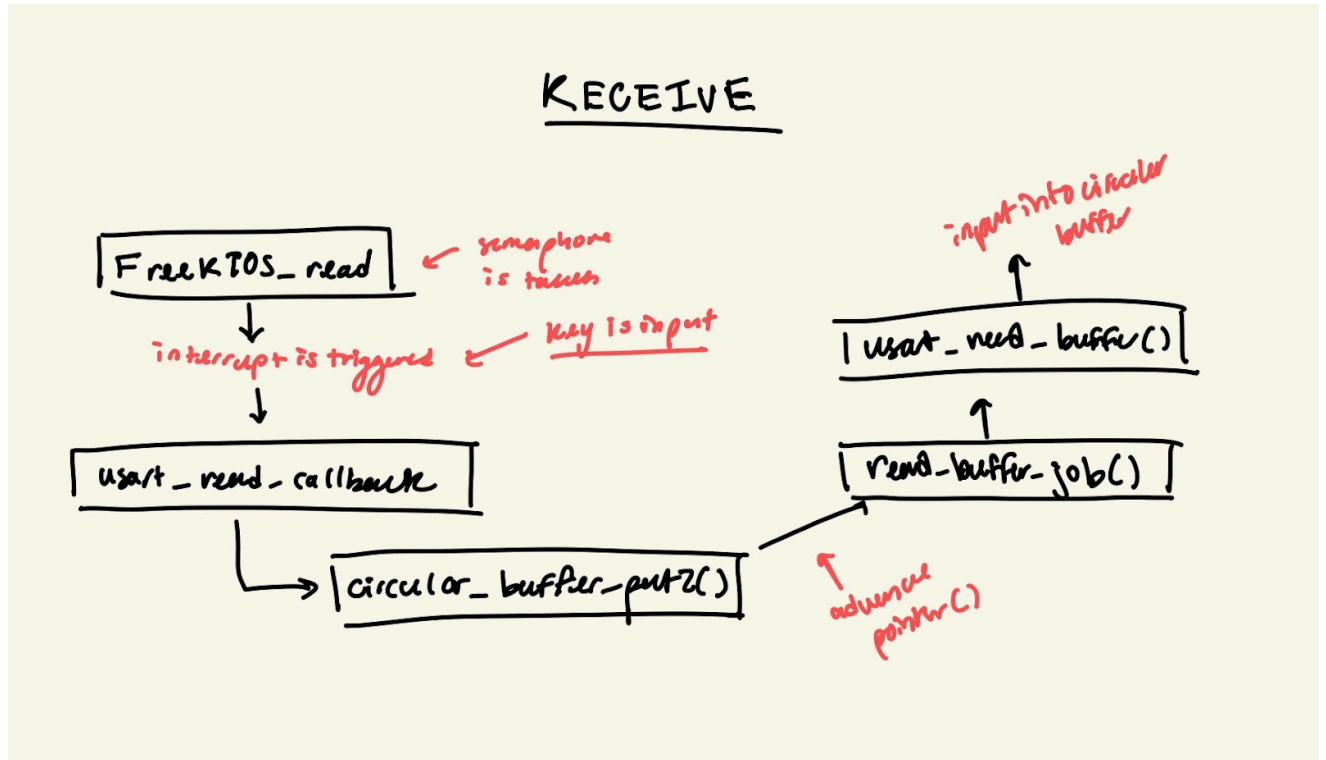 RECEIVE
FreeRTOS_read
semaphore
is taken
interrupt is triggered
key is input
usart_read_callback
circular_buffer_put2()
advance
pointer()
read_buffer_job()
usart_read_buffer()
input into circular
buffer